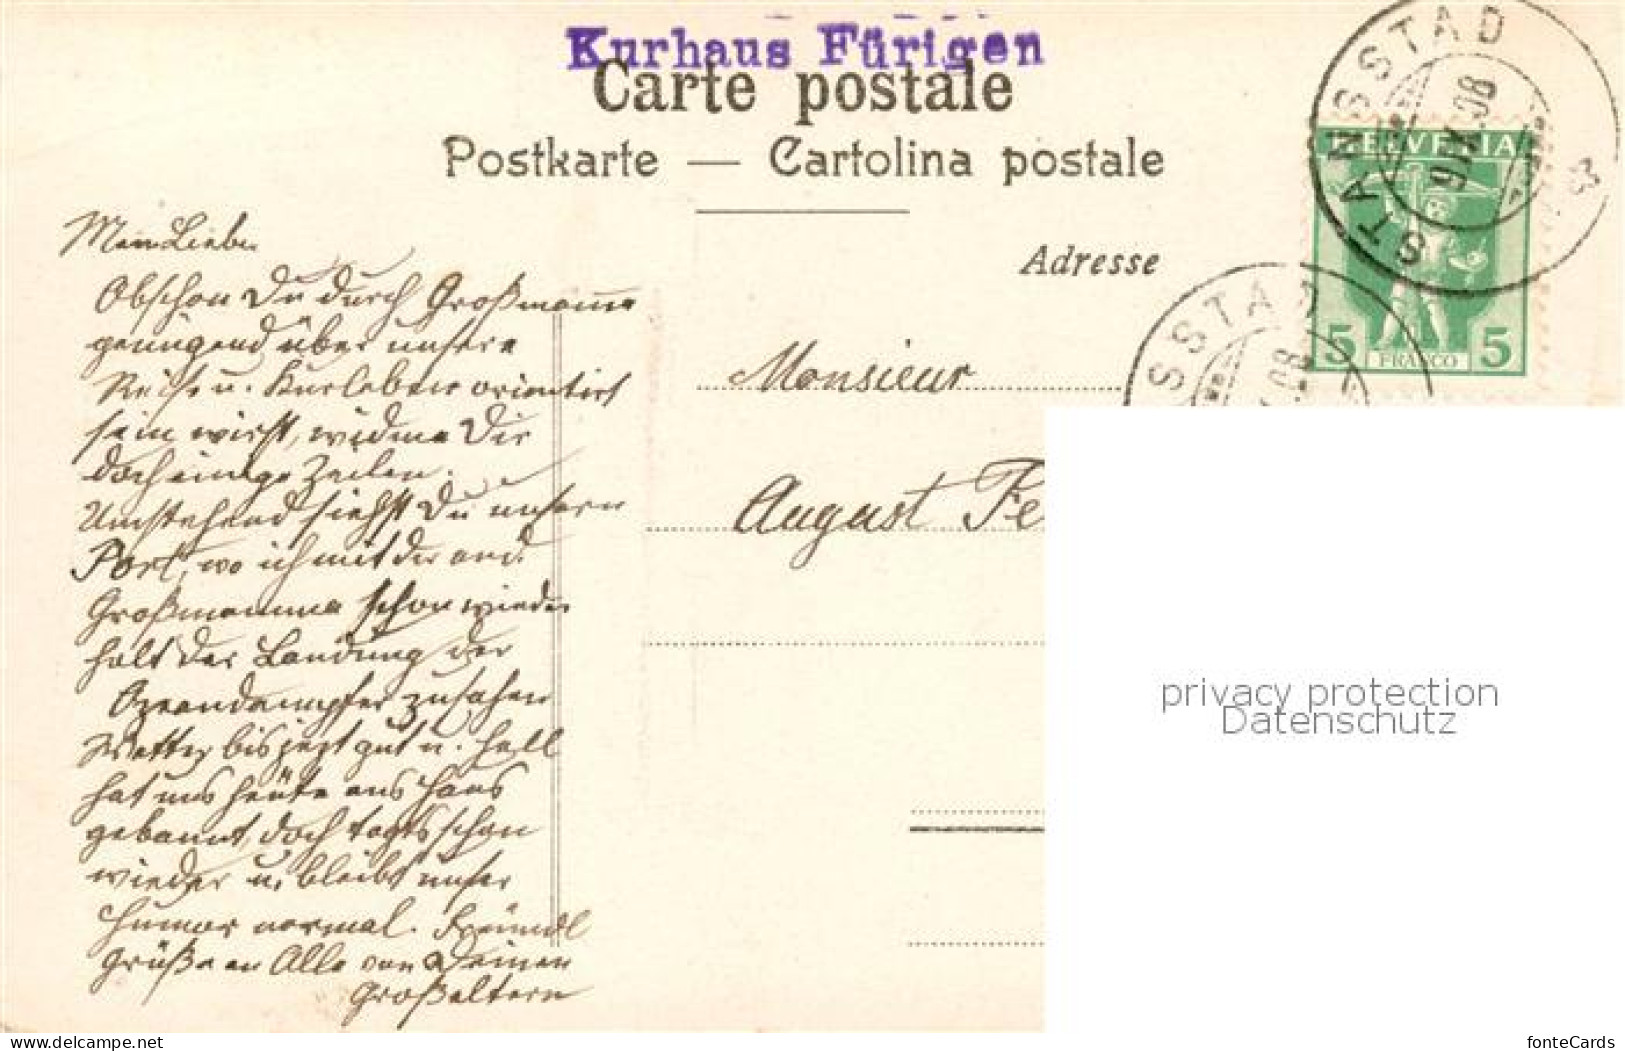 Kurhaus Fürigen
Carte postale
Postkarte — Cartolina postale
Adresse
STANSSTAD
08
HELVETIA
5 FRANCO 5
SSTAD
08
Mein Lieber
Obschon Du durch Großmama
genügend über unsere
Reise u. Kurleben orientirt
sein wirst, widme Dir
doch einige Zeilen.
Umstehend siehst Du unsern
Port, wo ich mit der
Großmamma schon wieder
holt der Landung der
Ozeandampfer zusahen
Wetter bis jezt gut u. hell
hat uns heute ans Haus
gebannt, doch tagts schon
wieder u. bleibt unser
Humor normal. Freundl
Grüße an Alle von Deinen
Großeltern
Monsieur
August Fe
privacy protection
Datenschutz
www.delcampe.net
fonteCards